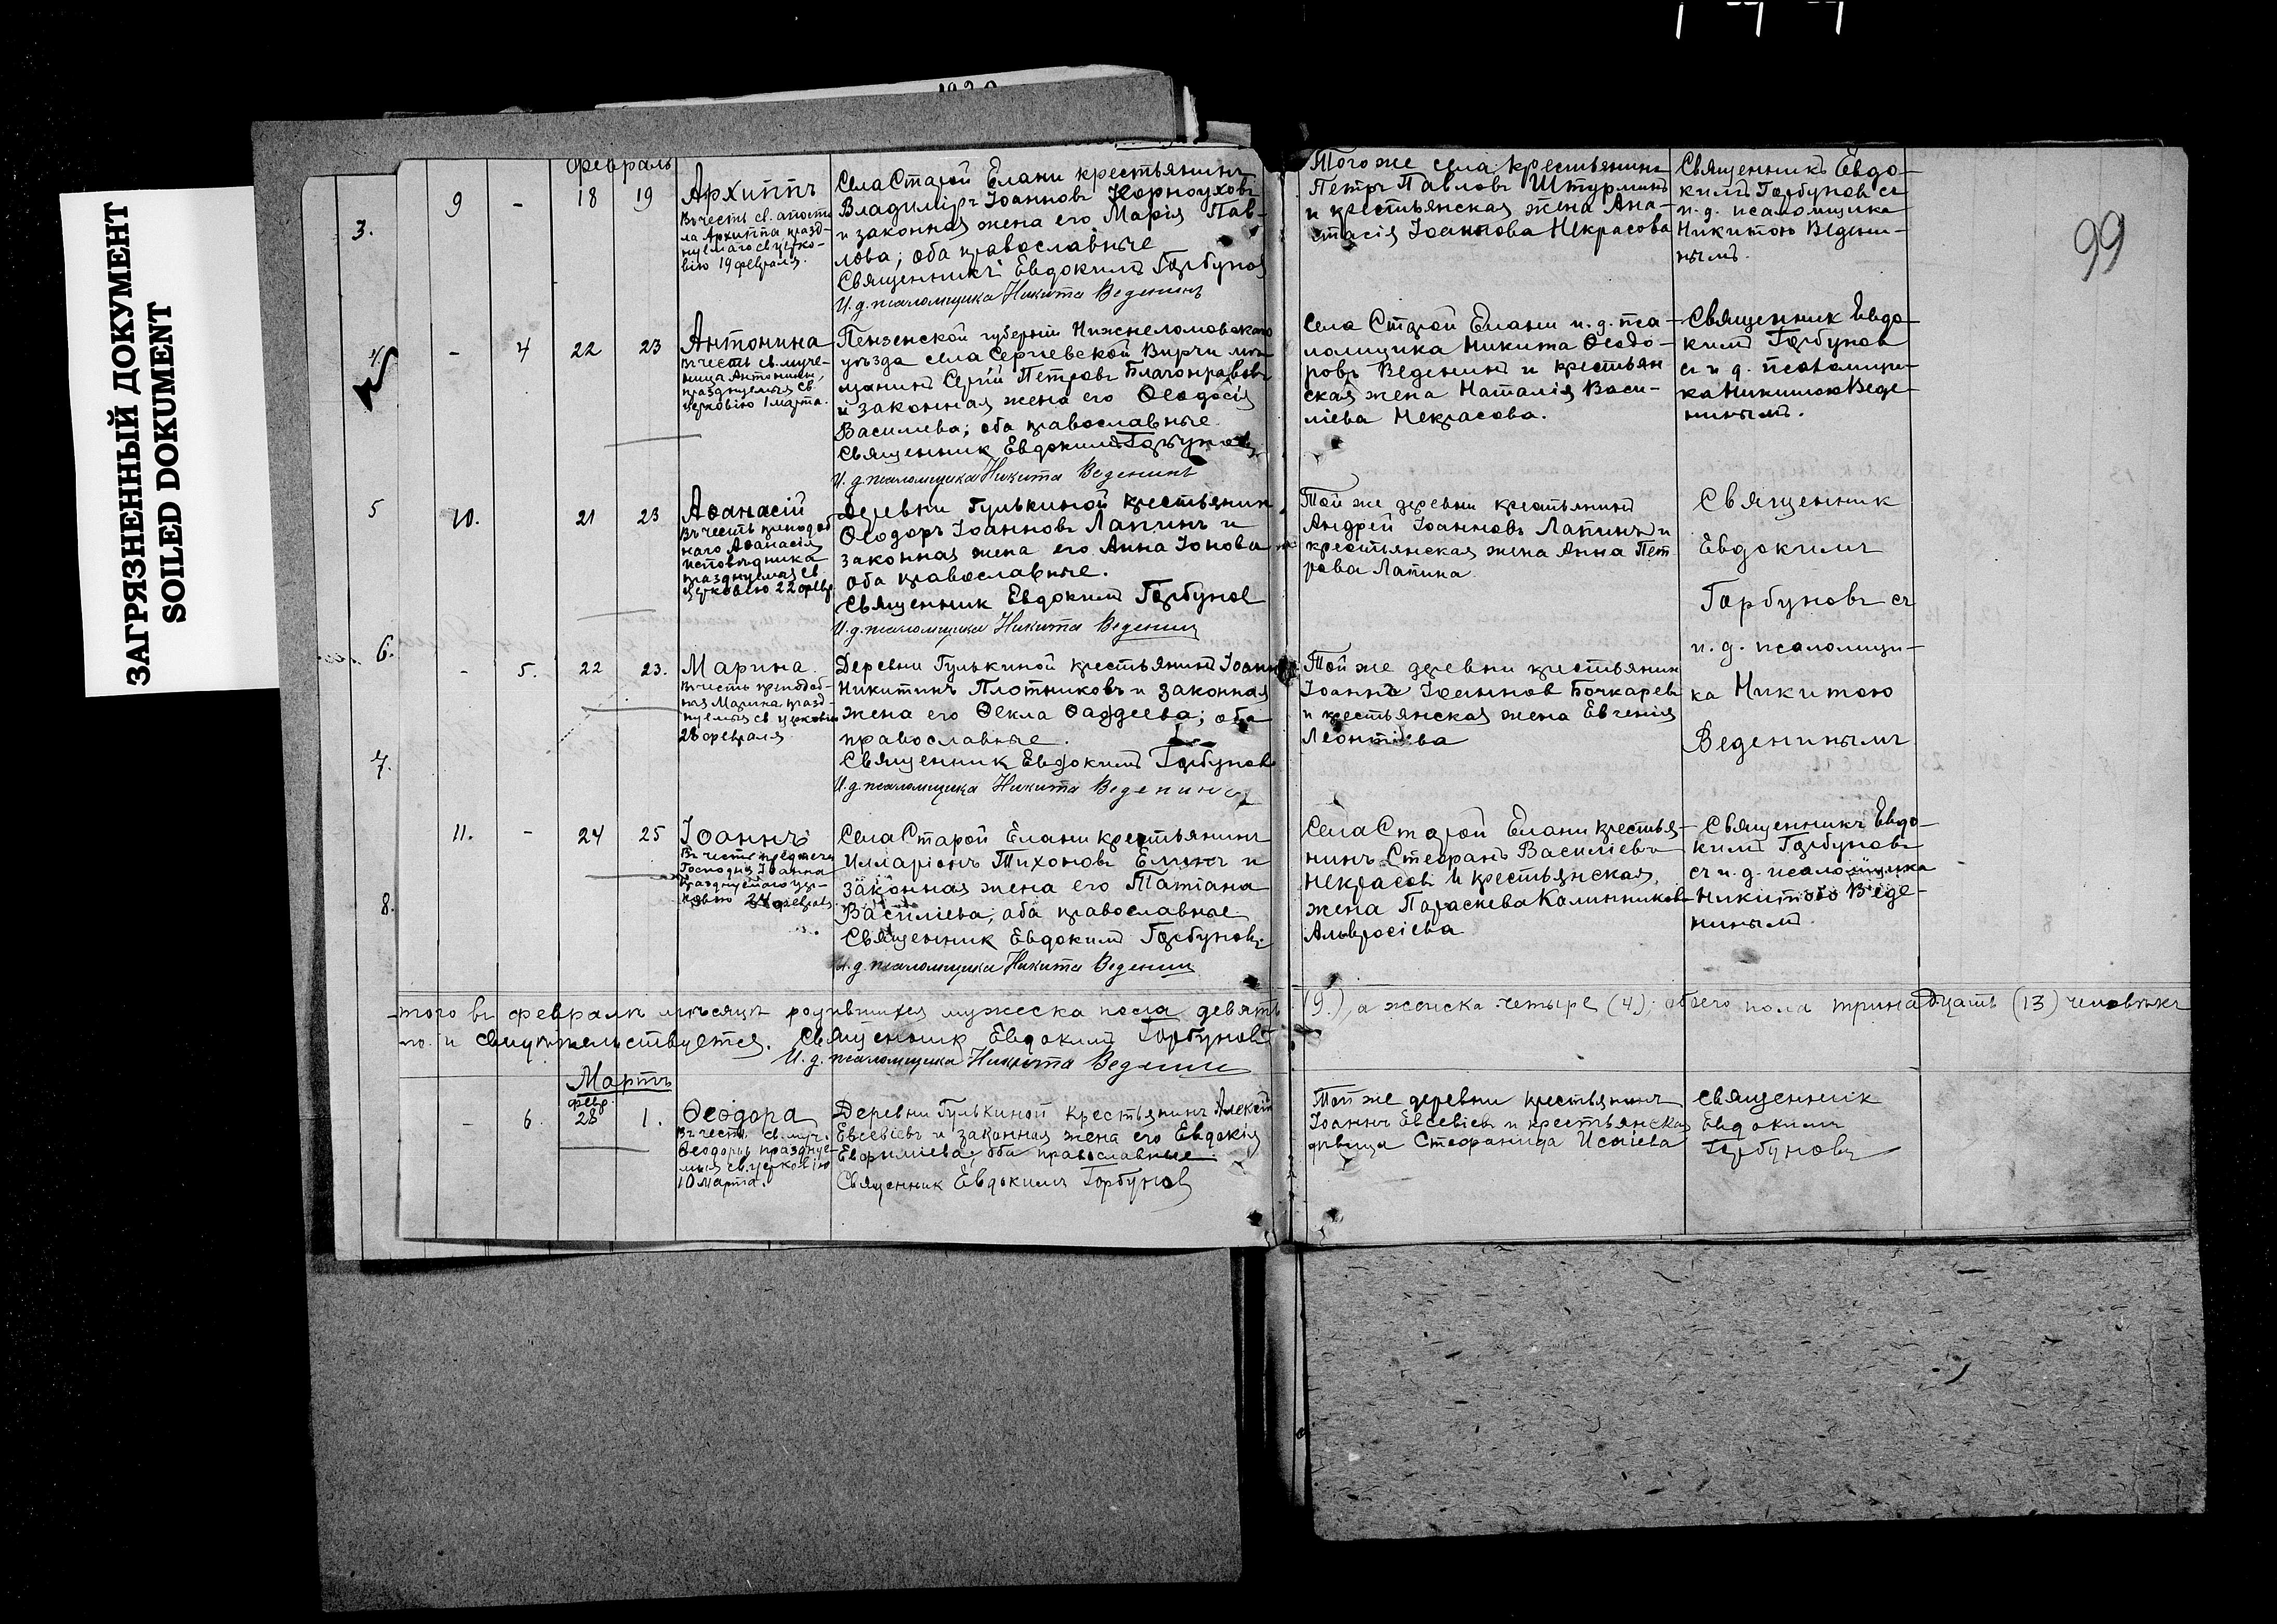 ЗАГРЯЗНЕННЫЙ ДОКУМЕНТ
SOILED DOKUMENT
99
Февраль
3.
9
-
18
19
Архиппъ
Въ честь св. апосто
ла Архиппа празд-
нуемаго св. церко-
вію 19 февраля.
Села Старой Елани крестьянинъ
Владиміръ Іоанновъ Корноуховъ
и законная жена его Марія Пав-
лова; оба православные
Священникъ Евдокимъ Горбуновъ
И. д. псаломщика Никита Веденинъ
Того же села крестьянинъ
Петръ Павловъ Штурминъ
и крестьянская жена Ана-
стасія Іоаннова Некрасова
Священникъ Евдо-
кимъ Горбуновъ съ
и. д. псаломщика
Никитою Ведени-
нымъ.
-
4
22
23
Антонина
Въ честь св. муче-
ницы Антонины,
празднуемыя св.
церковію 1 марта.
Пензенской губерніи Нижнеломовскаго
уѣзда села Сергіевской Вирги
Сергій Петровъ Благонравовъ
и законная жена его Ѳеодосія
Василиева; оба православные.
Священник Евдокимъ Горбуновъ
И. д. псаломщика Никита Веденинъ
Села Старой Елани и. д. пса-
ломщика Никита Ѳеодо-
ровъ Веденинъ и крестьян
ская жена Наталія Васи-
ліева Некрасова.
Священник Евдо
кимъ Горбунов
съ и д. псаломщи-
ка Никитою Веде-
нинымъ.
5
10.
21
23
Аѳанасій
Въ честь преподоб
наго Аѳанасія
исповѣдника
празднуемая св.
церковію 22 февр
Деревни Гулькиной крестьянин
Ѳеодоръ Іоанновъ Лапинъ и
законная жена его Анна Іонова
оба православные.
Священник Евдокимъ Горбунов
И. д. псаломщика Никита Веденин
Той же деревни крестьянинъ
Андрей Іоанновъ Лапинъ и
крестьянская жена Анна Пет
рова Лапина
Священник
Евдокимъ
Горбуновъ съ
и. д. псаломщи-
ка Никитою
Веденинымъ
6.
-
5.
22
23.
Марина.
Въ честь преподоб-
ныя Марина празд-
нуемыя св церковію
28 февраля
Деревни Гулькиной крестьянинъ Іоаннъ
Никитинъ Плотниковъ и законная
жена его Ѳекла Ѳаддеева; оба
православные.
Священник Евдокимъ Горбунов
И. д. псаломщика Никита Веденинъ
Той же деревни крестьянин
Іоаннъ Іоаннов Бочкарев
и крестьянская жена Евгенія
Леонтіева
7.
11.
-
24
25
Іоаннъ
Въ честь предтечи
Господня Іоанна
празднуемаго цер-
ковію 24 февраля
Села Старой Елани крестьянинъ
Илларіонъ Тихоновъ Елинъ и
законная жена его Татіана
Василіева; оба православные
Священник Евдокимъ Горбуновъ
И. д. псаломщика Никита Веденин
Села Старой Елани крестья-
нинъ Стефанъ Василіевъ
Некрасовъ и крестьянская
жена Параскева Калинникова
Амвросіева
Священникъ Евдо-
кимъ Горбуновъ
съ и. д. псаломщика
Никитою Веде-
нинымъ
8.
того въ февралѣ мѣсяцѣ родившихся мужеска пола девять (9.), а женска четыре (4); обоего пола тринадцать (13) человѣкъ
и свидѣтельствуется. Священник Евдокимъ Горбуновъ
И. д. псаломщика Никита Веденин
Мартъ
февр.
-
6.
28
1.
Ѳеодора
Въ честь св. муч.
Ѳеодоры празднуе-
мыя св. церковію
10 марта.
Деревни Гулькиной крестьянинъ Алексій
Евсевіевъ и законная жена его Евдокія
Евфиміева; оба православные
Священник Евдокимъ Горбунов
Той же деревни крестьянинъ
Іоаннъ Евсевіевъ и крестьянская
дѣвица Стефанида Исаіева
Священник
Евдокимъ
Горбуновъ